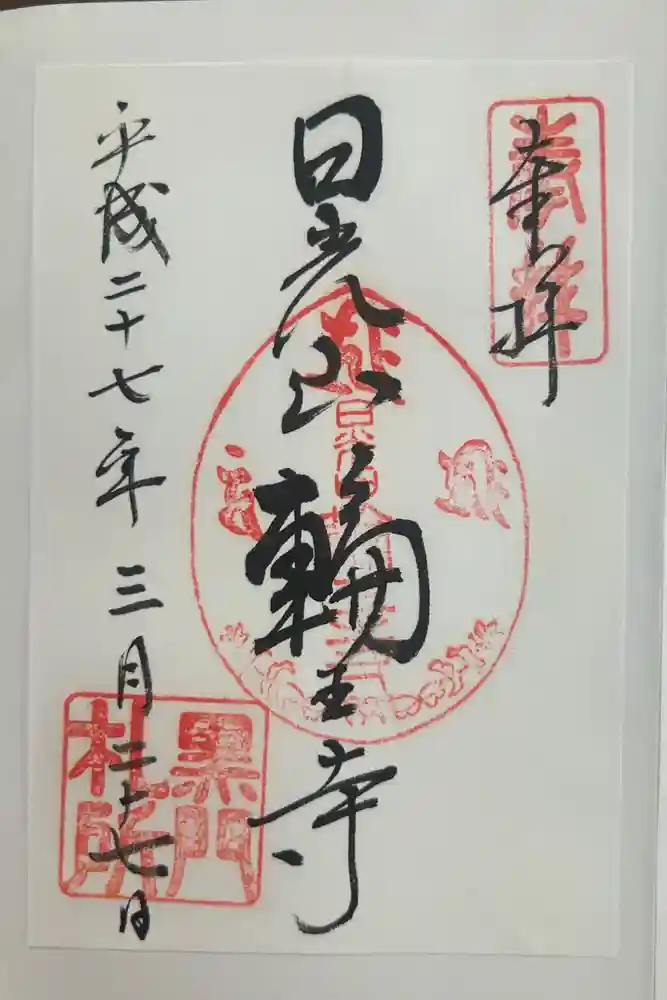 奉拝
奉拝
日光山輪王寺
平成二十七年三月二十七日
黒門
札所